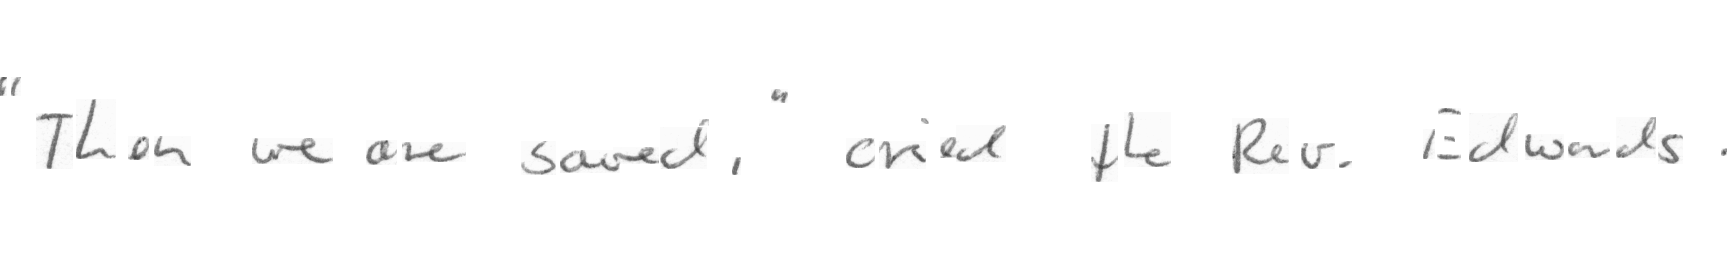 "Then we are saved," cried the Rev. Edwards.